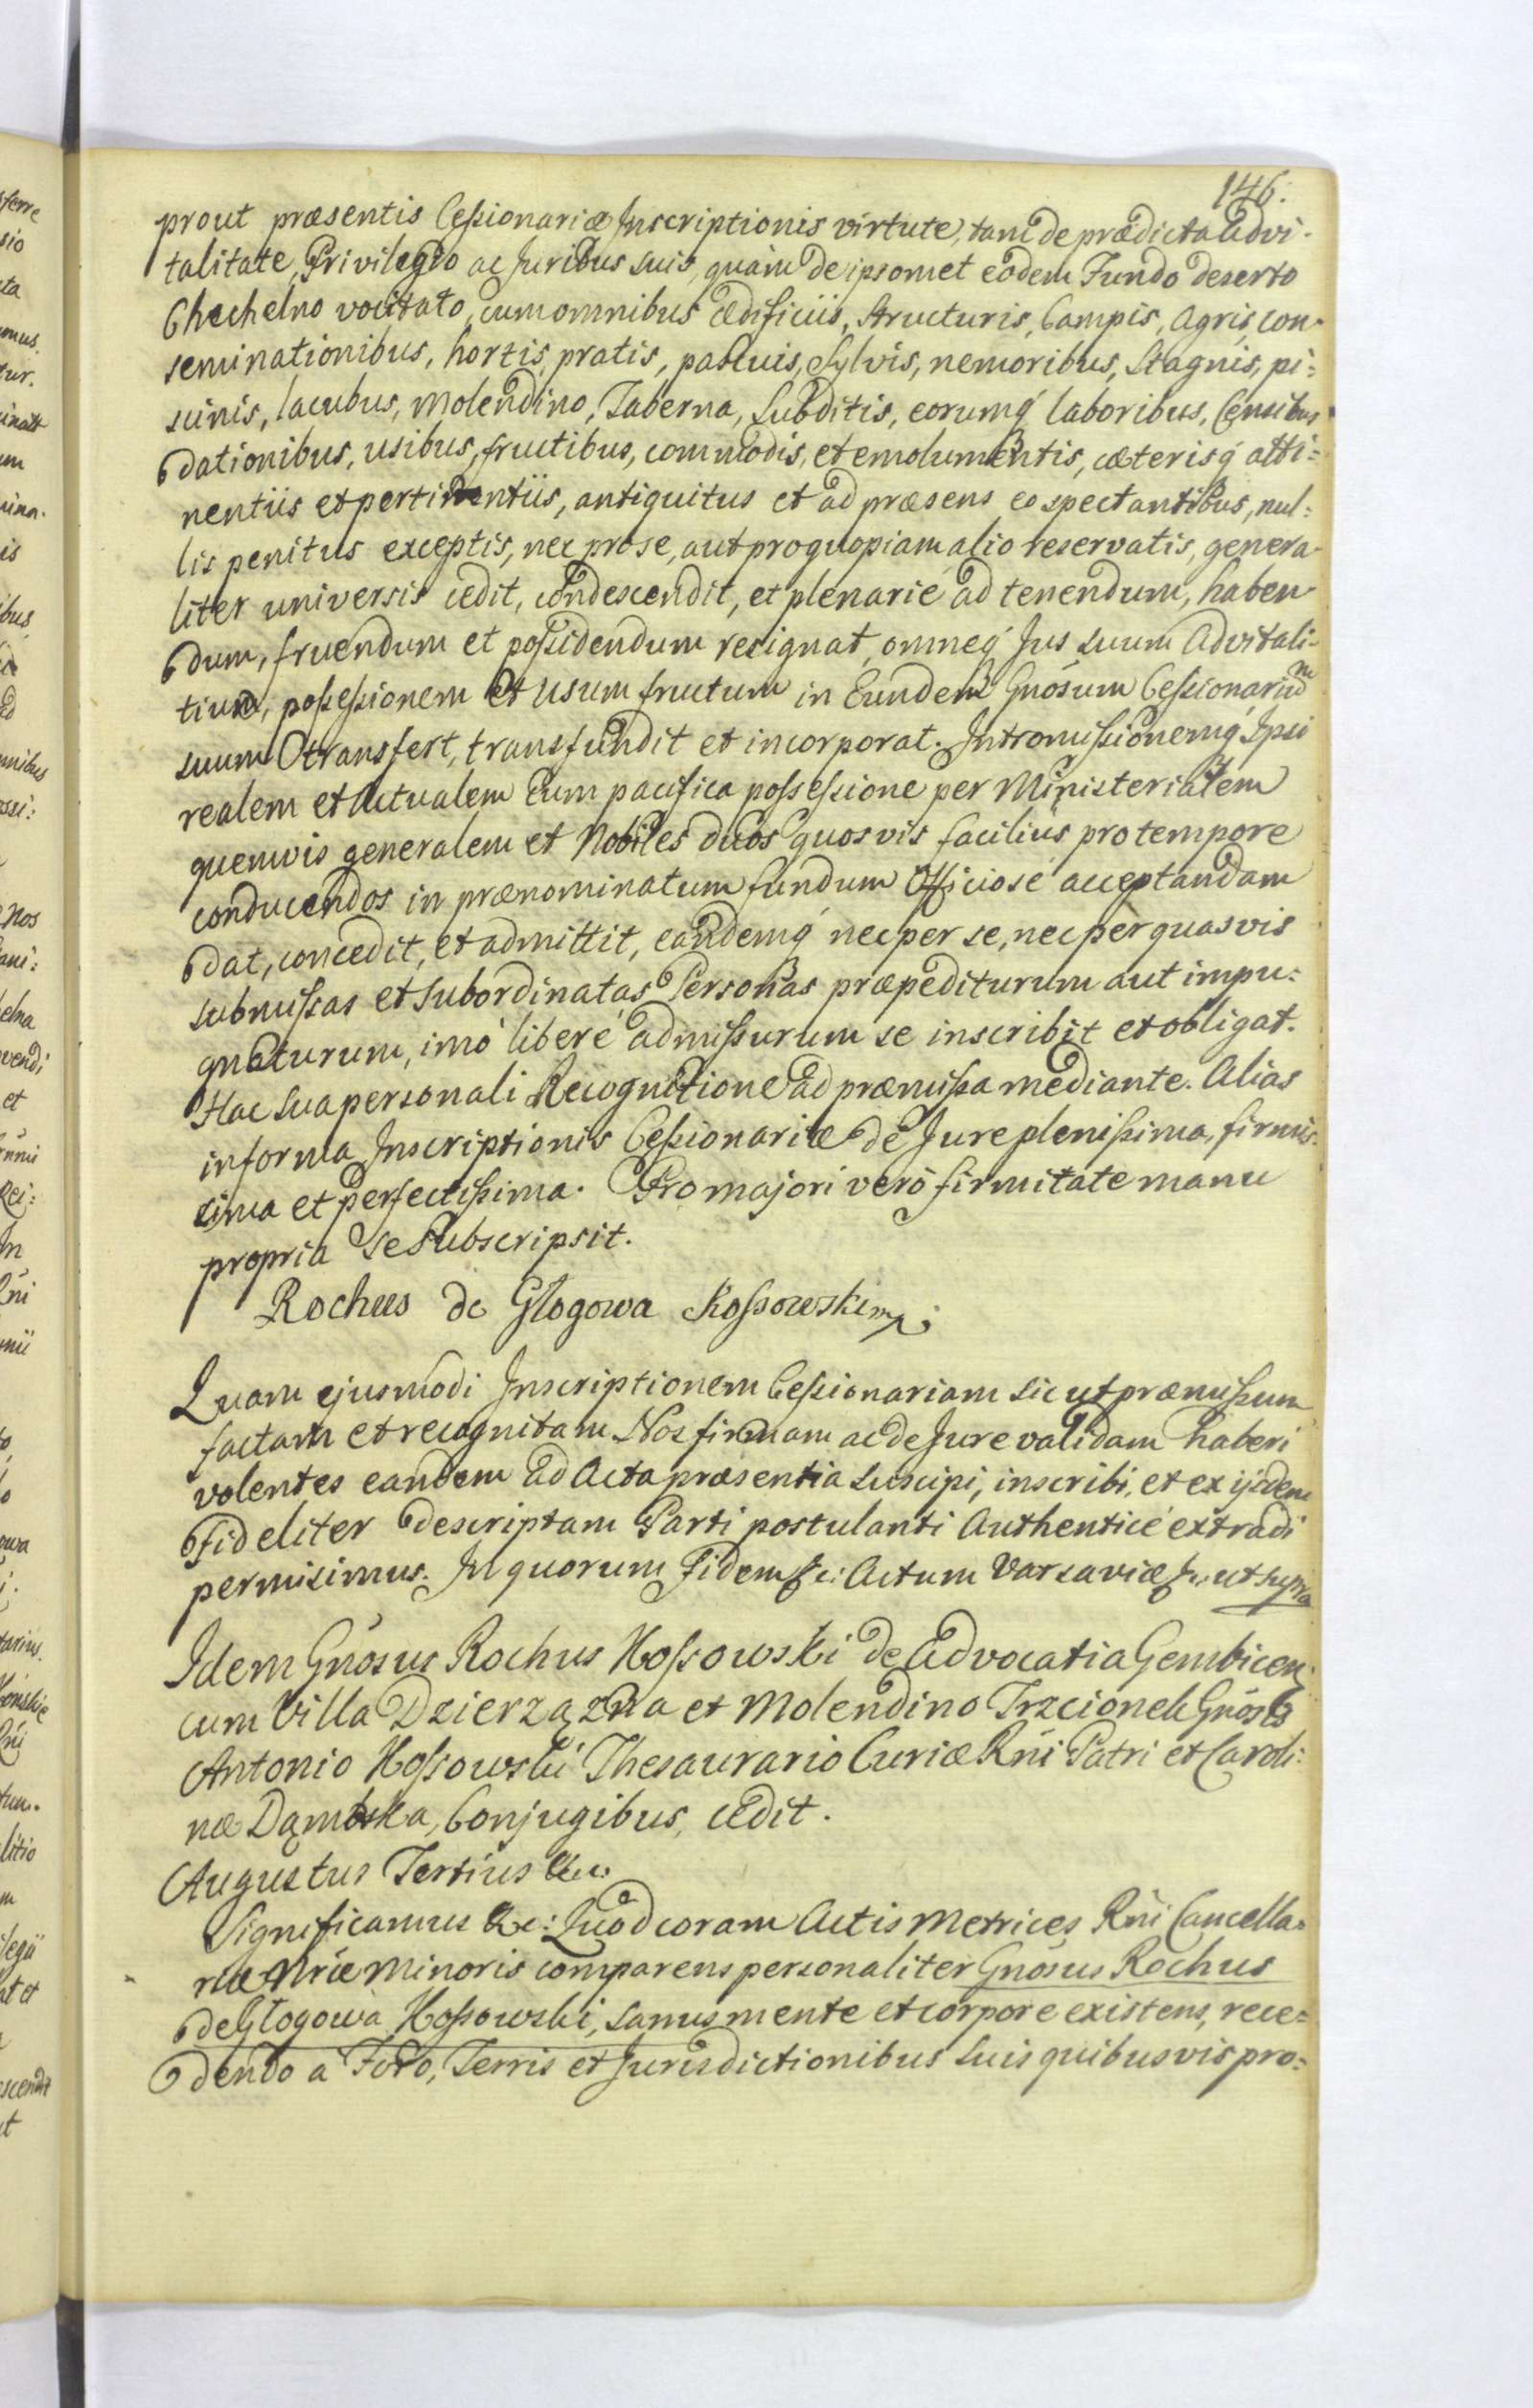 146.
prout præsentis Cessionariæ Inscriptionis virtute, tam de prædicta advi-
talitate, Privilegio ac Juribus suis, quàm de ipsomet eodem Fundo deserto
Chechelno vocitato, cum omnibus ædificiis, structuris, Campis, agris, con-
seminationibus, hortis, pratis, pascuis, sylvis, nemoribus, stagnis, pi:
scinis, lacubus, molendino, Taberna, subditis, eorumq́ laboribus, Censibus
dationibus, usibus, fructibus, commodis, et emolumentis, cæterisq́ atti:
nentiis et pertinentiis, antiquitus et ad præsens eo spectantibus, nul:
lis penitus exceptis, nec pro se, aut pro quopiam alio reservatis, genera-
liter universis cedit, condescendit, et plenarié ad tenendum, haben-
dum, fruendum et possidendum resignat, omneq́ Jus suum Advitali-
tium, possessionem et usum fructum in Eundem Gnósum Cessionariũm
suum transfert, transfundit et incorporat. Intromissionemq́ Ipsi
realem et Actualem cum pacifica possessione per Ministerialem
quemvis generalem et Nobiles duos quosvis faciliùs pro tempore
conducendos in prænominatum fundum Officiosé acceptandam
dat, concedit, et admittit, eandemq́ nec per se, nec per quasvis
submissas et subordinatas Personas præpediturum aut impu:
gnaturum, imó liberé admissurum se inscribit et obligat.
Hac sua personali Recognitione ad præmissa mediante. Alias
in forma Inscriptionis Cessionariæ de Jure plenissima, firmis:
sima et perfectissima. Pro majori veró firmitate manu
propria se subscripsit.
Rochus de Głogowa Kossowski mp
Quam ejusmodi Inscriptionem Cessionariam sic ut præmissum
factam et recognitam Nos firmam ac de Jure validam haberi
volentes eandem ad Acta præsentia suscipi, inscribi, et ex ijsdem
fideliter descriptam Parti postulanti Authenticé extradi
permisimus. In quorum Fidem &c: Actum Varsaviæ &c: ut supra
Idem Gnósus Rochus Kossowski de Advocatia Gembicen:
cum Villa Dzierzązna et Molendino Trzcionek Gnósis
Antonio Kossowski Thesaurario Curiæ Rńi Patri et Caroli:
næ Dąmbska, Conjugibus, cedit.
Augustus Tertius &c:
Significamus &c: Quod coram Actis Metrices Rńi Cancella:
riæ Nræ Minoris comparens personaliter Gnósus Rochus
de Głogowa Kossowski, sanus mente et corpore existens, rece:
dendo á Foro, Terris et Jurisdictionibus suis quibusvis pro: